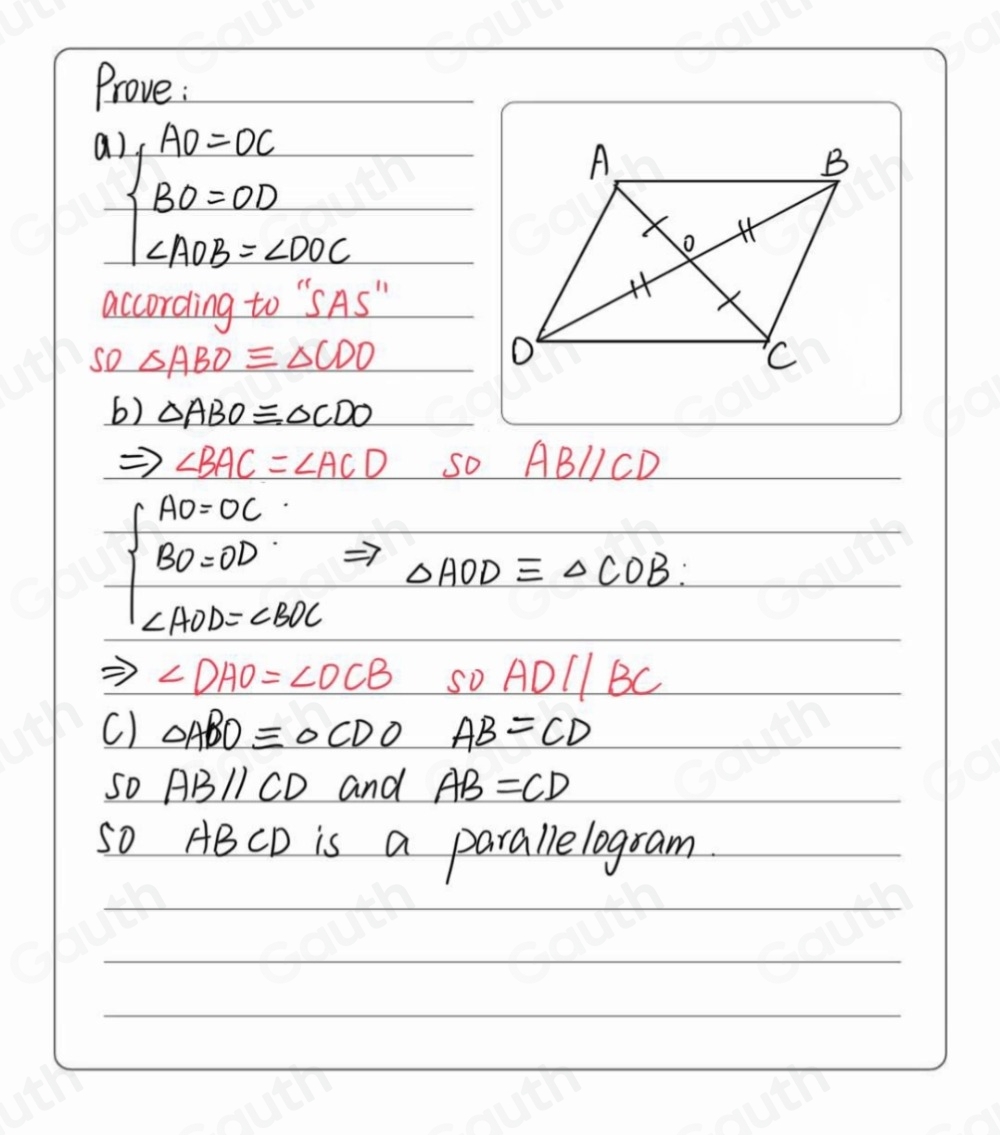 Prove:
a) AO=OC
BO=OD
∠AOB=∠DOC
according to "SAS"
so △ABO≡△CDO
b) △ABO≡△CDO
⇒ ∠BAC=∠ACD so AB//CD
AO=OC
BO=OD ⇒ △AOD≡△COB:
∠AOD=∠BOC
⇒ ∠DAO=∠OCB so AD//BC
C) △ABO≡△CDO AB=CD
so AB//CD and AB=CD
so ABCD is a parallelogram.
A B
O
D C
Gauth